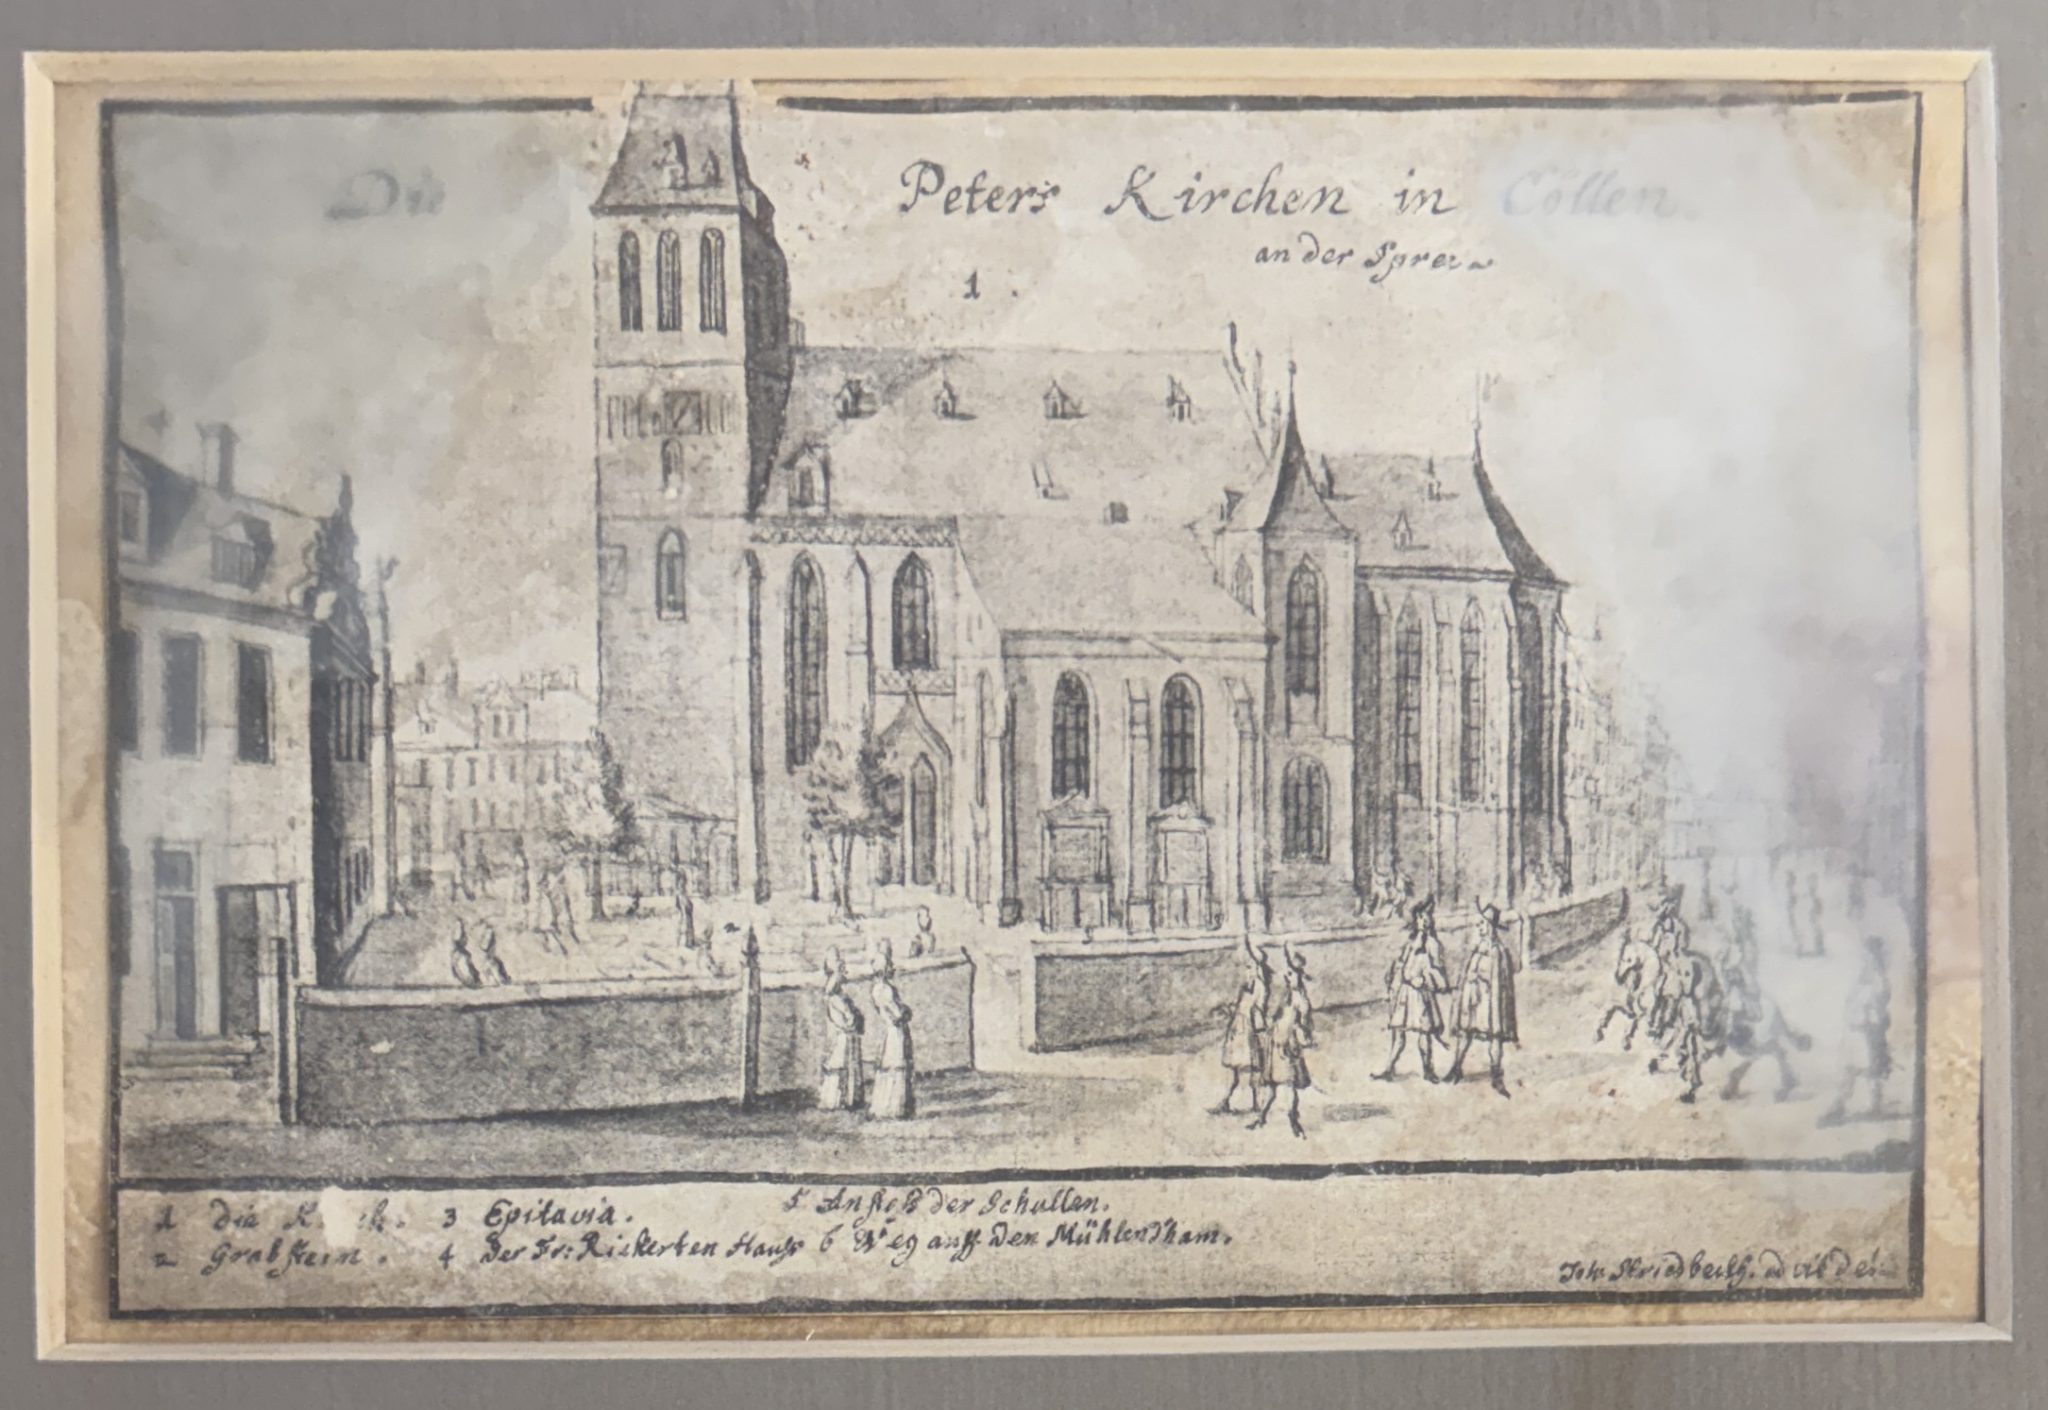 Die Peters Kirchen in Cöllen
an der Spree
1.
2
1 die K ch. 3 Epitavia. 5 der Schullen.
2 Grabstein. 4 Der Fr: Rickerten Hauss 6 Weg auff den Mühlendham.
Joh: Stridbeckh.